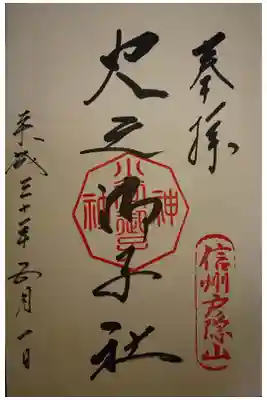 奉拝
信州戸隠山
火之御子社
平成三十年五月一日